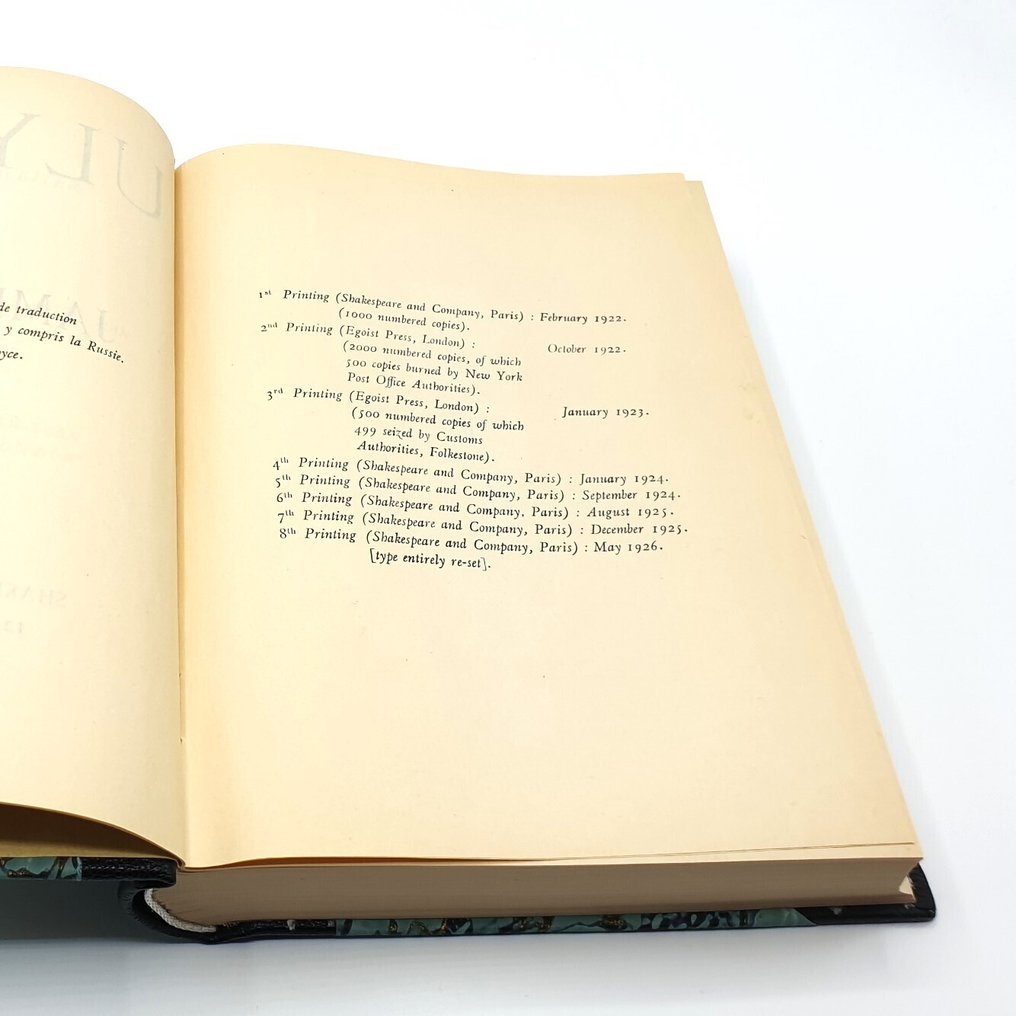 de traduction
y compris la Russie.
yce.
1st Printing (Shakespeare and Company, Paris) : February 1922.
(1000 numbered copies).
2nd Printing (Egoist Press, London) : October 1922.
(2000 numbered copies, of which
500 copies burned by New York
Post Office Authorities).
3rd Printing (Egoist Press, London) : January 1923.
(500 numbered copies of which
499 seized by Customs
Authorities, Folkestone).
4th Printing (Shakespeare and Company, Paris) : January 1924.
5th Printing (Shakespeare and Company, Paris) : September 1924.
6th Printing (Shakespeare and Company, Paris) : August 1925.
7th Printing (Shakespeare and Company, Paris) : December 1925.
8th Printing (Shakespeare and Company, Paris) : May 1926.
[type entirely re-set].